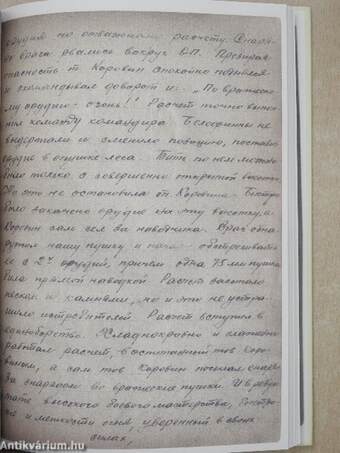 орудия по отважному расчету. Снаря-
ды врага рвались вокруг О-П. Презирая
опасность т. Коровин спокойно
и скомандовал доворот и: "По вражес-
кому орудию - огонь!" Расчет точно выпол-
нил команду командира. Белофинны не
выдержали и сменили позицию, поставив
орудие в опушке леса. Бить по нем можно
было только с совершенно открытой высоты.
Но это не остановила от. Коровина. Быстро
было выкачено орудие на эту высотку, а
Коровин сам сел за наводчика. Враг обна-
ружил нашу пушку и начал обстреливать
ее с 2х орудий, причем одна 75 мм пушка
била прямой наводкой. Расчет
песком и камнями, но и это не устра-
шило истребителей. Расчет вступил в
единоборство. Хладнокровно и слаженно
работал расчет, воспитанный тов. Коро-
виным, а сам тов. Коровин посылал снаряд
за снарядом по вражеские пушки. И в резуль-
тате высокого боевого мастерства, быстро-
ты и меткости огня, уверенный в своих
силах,
Antikvárium.hu